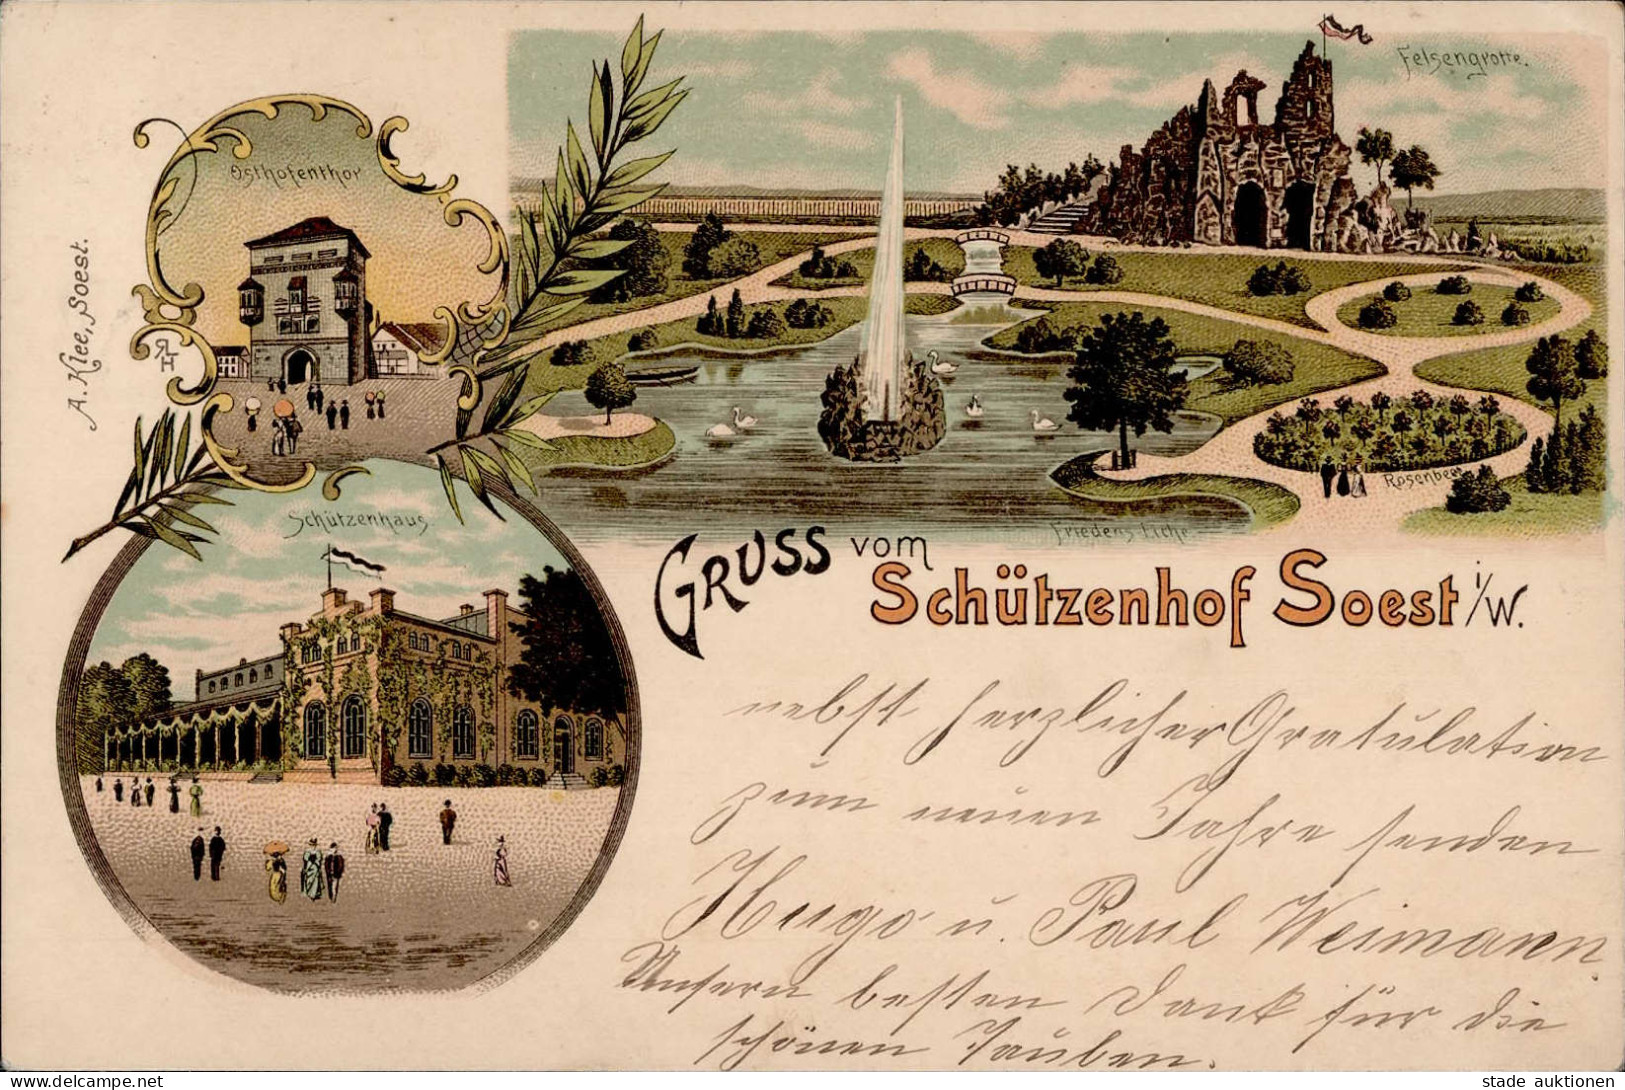 Felsengrotte.
Osthofenthor
A. Klee, Soest.
RLH
Rosenbeet
Friedens Eiche.
Schützenhaus.
GRUSS vom
Schützenhof Soest i/W.
nebst herzlicher Gratulation
zum neuen Jahre senden
Hugo u. Paul Weimann
Unsern besten Dank für die
schönen Tauben.
stade auktionen